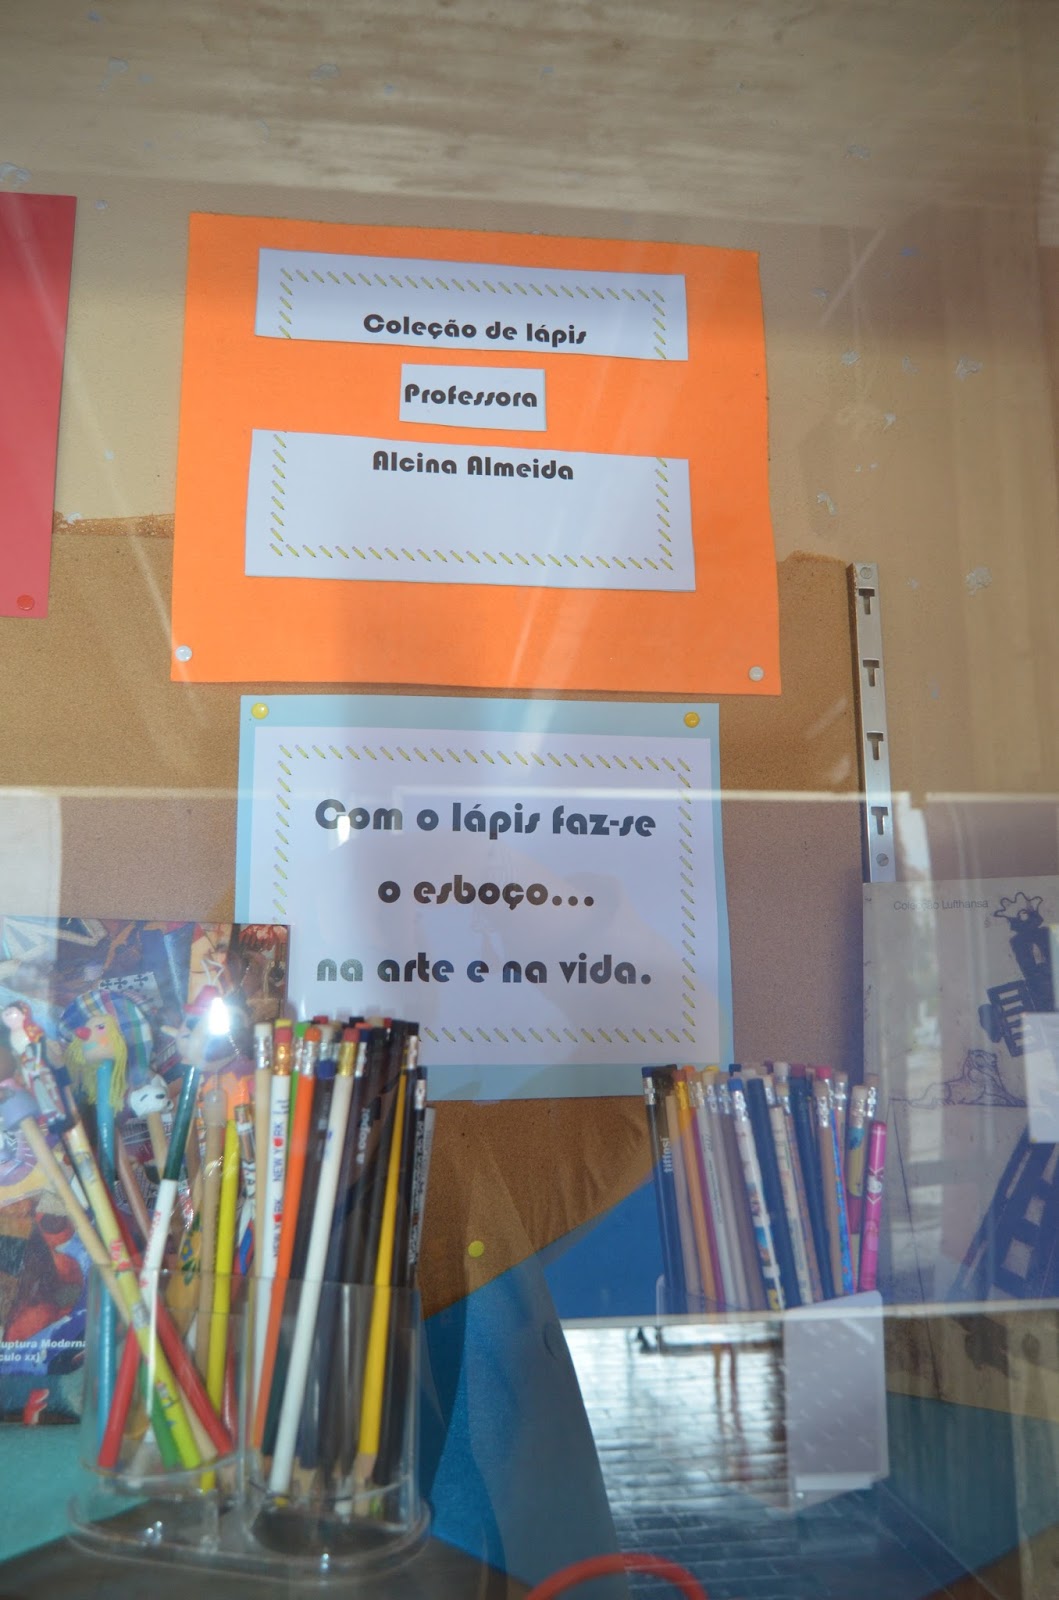 Coleção de lápis
Professora
Alcina Almeida
Com o lápis faz-se
o esboço...
na arte e na vida.
Lufthansa
NEW YORK
NEW YORK
uptura Moderna
culo xx)